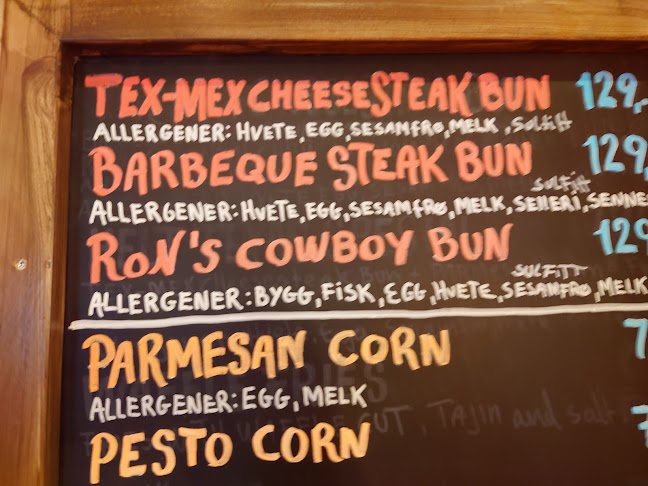 TEX-MEX CHEESESTEAK BUN 129,-
ALLERGENER: HVETE, EGG, SESAMFRØ, MELK, Sulfitt
BARBEQUE STEAK BUN 129,
sulfitt
ALLERGENER: HVETE, EGG, SESAMFRØ, MELK, SELLERI, SENNE
RON'S COWBOY BUN 129
SULFITT
ALLERGENER: BYGG, FISK, EGG, HVETE, SESAMFRØ, MELK
PARMESAN CORN 7
ALLERGENER: EGG, MELK
CUT, TAJIN and salt.
PESTO CORN 7